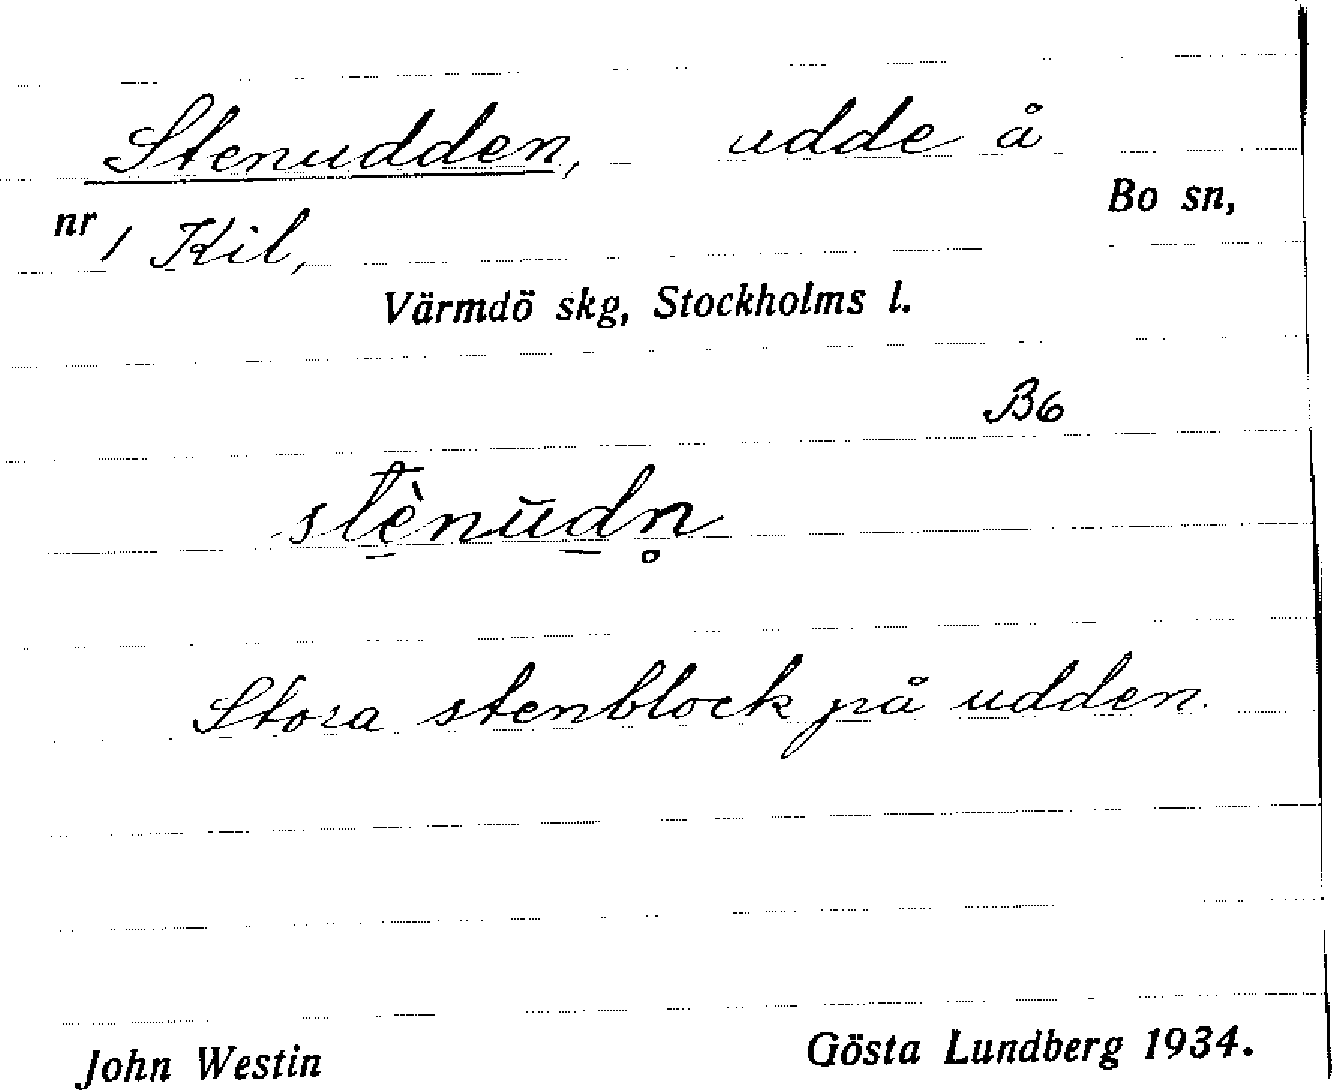 Stenudden, udde å
nr 1 Kil, Bo sn,
Värmdö skg, Stockholms l.
B6
stè̱nūḏn̥
Stora stenblock på udden.
John Westin Gösta Lundberg 1934.